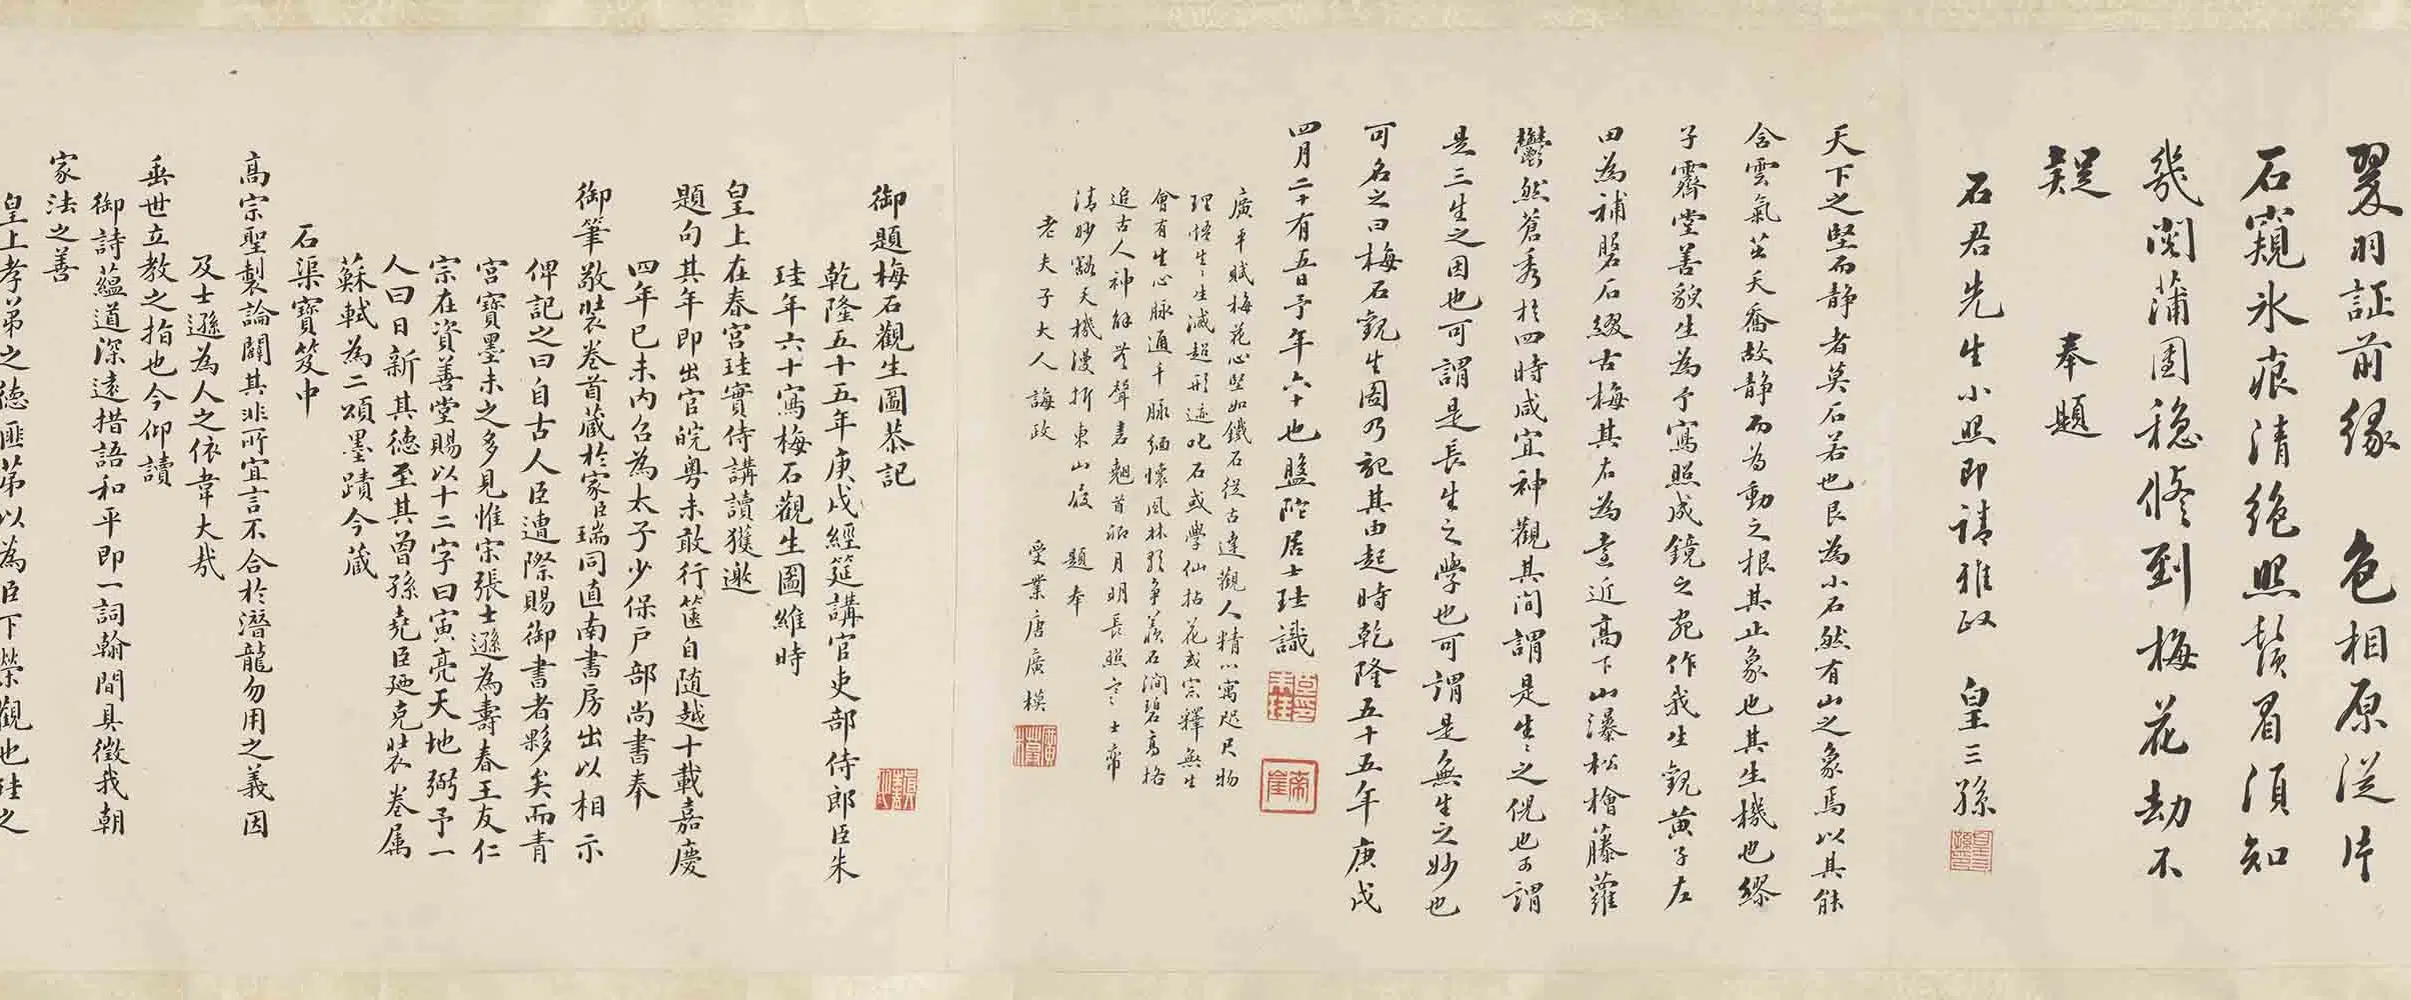 翠羽証前緣　色相原從片
石窺氷痕清絶照鬚眉須知
幾閱蒲團穩修到梅花劫不
疑　奉題
石君先生小照即請雅政　皇三孫
天下之堅而静者莫石若也艮為小石然有山之象焉以其能
含雲氣茁夭喬故静而為動之根其止象也其生機也繆
子霽堂善貌生為予寫照成鏡之宛作我生觀黄子左
田為補磐石綴古梅其右為壴近高下山瀑松檜藤蘿
鬱然蒼秀於四時咸宜神觀其間謂是生〻之倪也可謂
是三生之因也可謂是長生之學也可謂是無生之妙也
可名之曰梅石觀生圖乃記其由起時乾隆五十五年庚戌
四月二十有五日予年六十也盤陀居士珪識
廣平賦梅花心堅如鐵石從古達觀人精心寓咫尺物
理悟生〻生滅超形迹叱石或學仙拈花或宗釋無生
會有生心脉通千脉緬懷風林影争羨石澗碧高格
追古人神解㫄聲書翹首孤月明長照
清妙豁天機漫折東山屐　題奉
老夫子大人誨政　受業唐廣模
御題梅石觀生圖恭記
乾隆五十五年庚戌經筵講官吏部侍郎臣朱
珪年六十寫梅石觀生圖維時
皇上在春宮珪實侍講讀獲邀
題句其年即出官皖粤未敢行篋自随越十載嘉慶
四年已未内召為太子少保戸部尚書奉
御筆敬裝卷首藏於家臣瑞同直南書房出以相示
俾記之曰自古人臣遭際賜御書者夥矣而青
宮寶墨未之多見惟宋張士遜為壽春王友仁
宗在資善堂賜以十二字曰寅亮天地弼予一
人曰日新其德至其曾孫堯臣廼克裝卷属
蘇軾為二頌墨蹟今藏
石渠寶笈中
高宗聖製論闢其非所宜言不合於潛龍勿用之義因
及士遜為人之依韋大哉
垂世立教之指也今仰讀
御詩蘊道深遠措語和平即一詞翰間具徵我朝
家法之善
皇上孝弟之德匪苐以為臣下榮觀也珪之